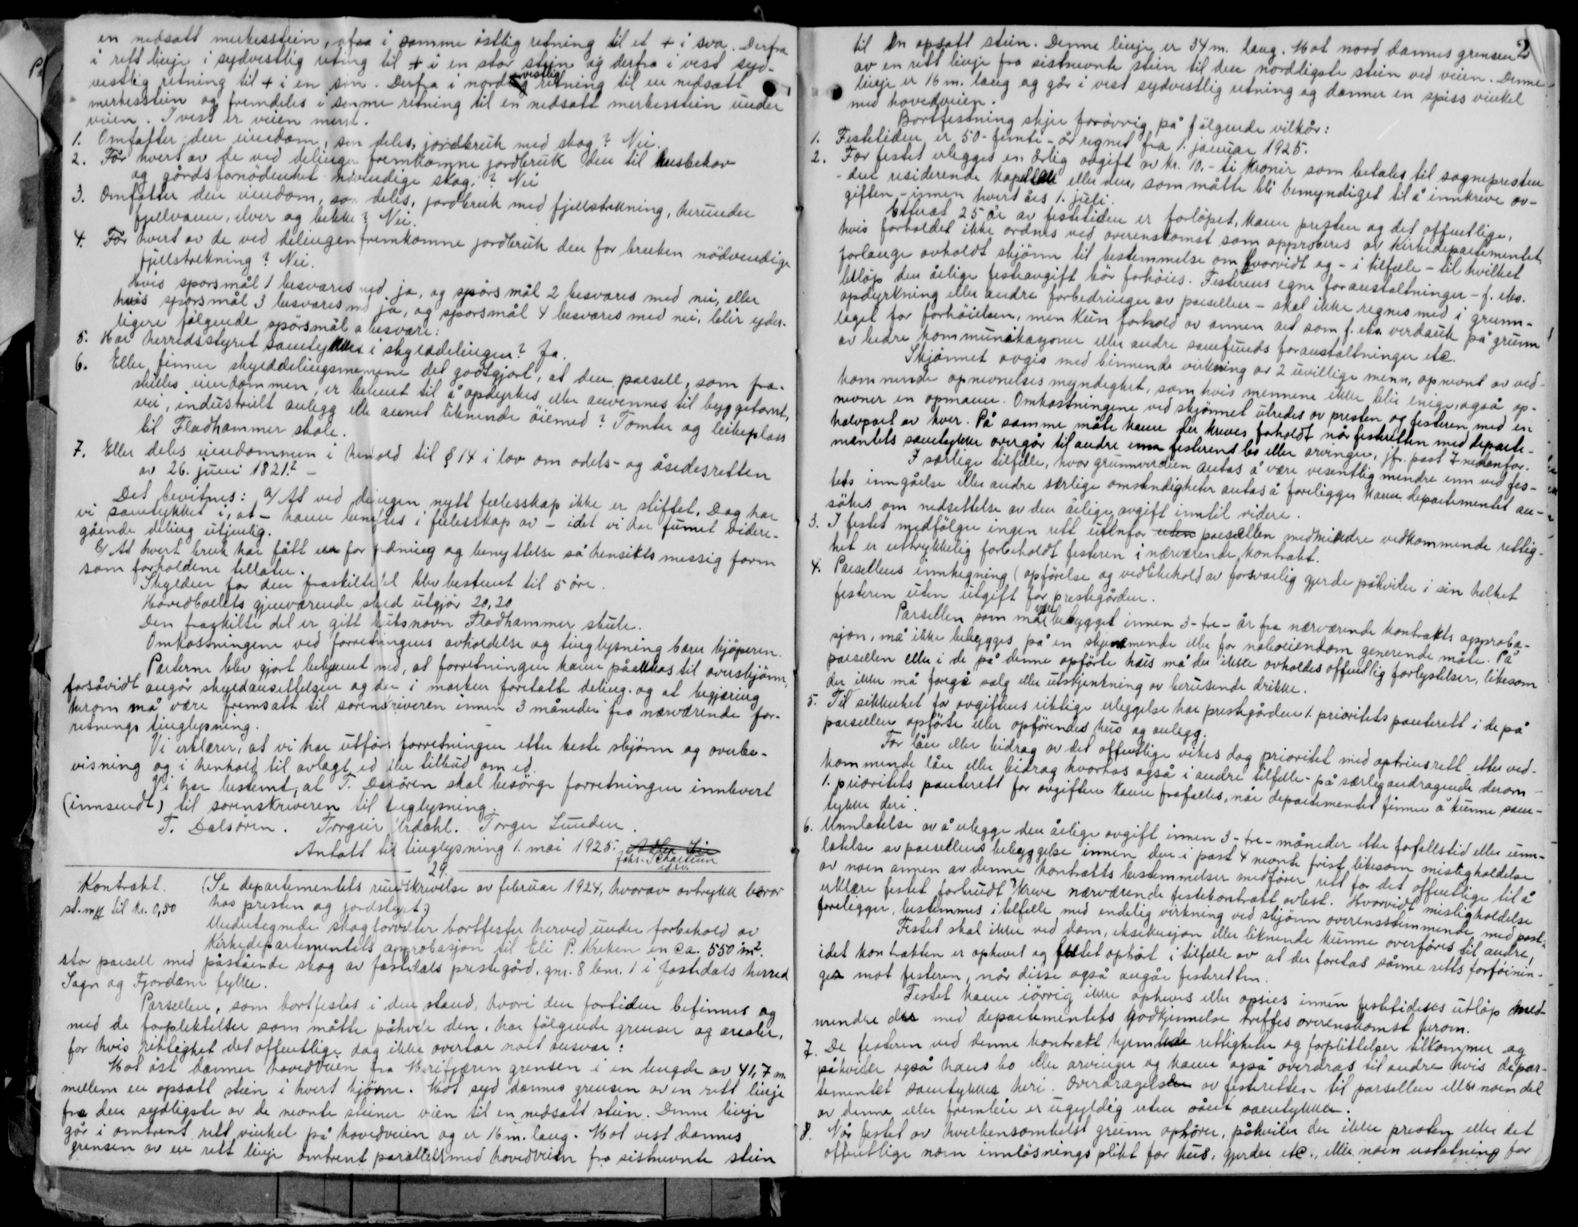 en nedsatt merkesstein, ofsa i samme östlig retning til et + i sva. Derfra
i rett linje i sydvestlig retning til + i en stor stein og derfra i vest syd-
vestlig retning til + i en sin. Derfra i nordvestlig retning til en nedsatt
merkesstein og fremdeles i samme retning til en nedsatt merkesstein under
veien. I vest er veien merst.
1. Omfatter den eiendom, som deles, jordbruk med skog? Nei.
2. Får hvert av de ved delingen fremkomne jordbruk den til husbehov
og gårdsfornödenhet nödvendige skog? Nei
3. Omfatter den eiendom, som deles, jordbruk med fjellstrekning, herunder
fjellvanne, elver og bekke? Nei.
4. Får hvert av de ved delingen fremkomne jordbruk den for bruken nödvendige
fjellstrekning? Nei.
Hvis sporsmål 1 besvares med ja, og spörsmål 2 besvares med nei, eller
hvis sporsmål 3 besvares med ja, og sporsmål 4 besvares med nei, blir yder-
ligere fölgende spörsmål å besvare:
5. Har herredsstyret samtykket i skylddelingen? Ja.
6. Eller finner skylddelingsmennene det godtgjort, at den parsell, som fra-
skilles eiendommen, er bestemt til å opdyrkes eller anvennes til byggetomt,
vei, industrielt anlegg eller annet liknende öiemed? Tomter og leikeplass
til Fladhammer skole.
7. Eller deles eiendommen i henhold til § 14 i lov om odels- og åsedesretten
av 26. juni 1821? –
Det bevitnes: a/ At ved delingen nytt fellesskap ikke er stiftet. Dog har
vi samtykket i, at – kann benyttes i fellesskap av – idet vi har funnet videre-
gående deling utjenlig.
b/ At hvert bruk har fått en for drining og benyttelse så hensiktsmessig form
som forholdene tillater.
Skylden for den fraskilte del blev bestemt til 5 öre.
Hovedbölets gjenværende skyld utgjör 20,20
Den fraskilte del er gitt bruksnavn Fladhammer skule.
Omkostningene ved forretningens avholdelse og tinglysning bærer kjöperen.
Parterne blev gjort bekjennt med, at forretningen kann påankes til overskjönn,
forsåvidt angår skyldansettelsen og den i marken foretatte deling, og at begjæring
herom må være fremsatt til sorenskriveren innen 3 måneder fra nærværende for-
retnings tinglysning.
Vi erklærer, at vi har utfört forretningen efter beste skjönn og overbe-
visning og i henhold til avlagt ed eller tilbud om ed.
Vi har bestemt, at T. Dalsören skal besörge forretningen innlevert
(innsendt) til sorenskriveren til tinglysning.
T. Dalsören. Torgeir Urdahl. Torger Lunden.
Antatt til tinglysning 1. mai 1925.
29.
Kontrakt.
st.mrk til kr. 0,50
(Se departementets rundskrivelse av februar 1924, hvorav avtrykk beror
hos presten og jordstyret)
Undertegnede skogforvalter bortfester herved under forbehold av
Kirkedepartementets approbasjon til Eli P. Kruken en ca. 550 m²
stor parsell med påstående skog av Jostedals prestegård, gnr. 8 bnr. 1 i Jostedals herred
Sogn og Fjordane fylke.
Parsellen, som bortfestes i den stand, hvori den fortiden befinnes og
med de forpliktelser som måtte påhvile den, har fölgende grenser og arealer,
for hvis riktighet det offentlige dog ikke overtar noet ansvar:
Mot öst danner hovedveien fra Marifjæren grensen i en lengde av 41,7 m
mellem en opsatt stein i hvert hjörne. Mot syd dannes grensen av en rett linje
fra den sydligste av de nevnte steiner veien til en nedsatt stein. Denne linje
går i omtrent rett vinkel på hovedveien og er 16 m. lang. Mot vest dannes
grensen av en rett linje omtrent parallell med hovedveien fra sistnevnte stein
2
til en opsatt stein. Denne linje er 34 m. lang. Mot nord dannes grensen
av en rett linje fra sistnevnte stein til den nordligste stein ved veien. Denne
linje er 16 m. lang og går i vest sydvestlig retning og danner en spiss vinkel
med hovedveien.
Bortfestning skjer forövrig på fölgende vilkår:
1. Festetiden er 50 - femti - år regnet fra 1. januar 1925.
2. For festet erlegges en årlig avgift av kr. 10,- ti kroner som betales til sognepresten
- den residerende kapellan eller den, som måtte bli bemyndiget til å innkreve av-
giften - innen hvert års 1. juli.
Efterat 25 år av festetiden er forlöpet, kann presten og det offentlige,
hvis forholdet ikke ordnes ved overenskomst som approberes av Kirkedepartementet,
forlange avholdt skjönn til bestemmelse om hvorvidt og - i tilfelle - til hvilket
belöp den årlige festeavgift bör forhöies. Festerens egne foranstaltninger - f. eks.
opdyrkning eller andre forbedringer av parsellen - skal ikke regnes med i grunn-
laget for forhöielsen, men kun forhold av annen art som f. eks. verdauk på grunn
av bedre kommunikasjoner eller andre samfunds foranstaltninger etc.
Skjönnet avgis med binnende virkning av 2 uvillige menn, opnevnt av ved-
kommende opnevnelses myndighet, som hvis mennene ikke blir enige, også op-
nevner en opmann. Omkostningene ved skjönnet utredes av presten og festeren med en
halvpart av hver. På samme måte kann der kreves forholdt når festeretten med departe-
mentets samtykke overgår til andre enn festerens bo eller arvinger, jfr. post 7 nedenfor.
I særlige tilfelle, hvor grunnverdien antas å være vesentlig mindre enn ved fes-
tets inngåelse eller andre særlige omstendigheter antas å foreligge, kann departementet an-
sökes om nedsettelse av den årlige avgift inntil videre.
3. I festet medfölger ingen rett utenfor parsellen medmindre vedkommende rettig-
het er uttrykkelig forbeholdt festeren i nærværende kontrakt.
4. Parsellens innhegning (opförelse og vedlikehold av forsvarlig gjerde påhviler i sin helhet
festeren uten utgift for prestegården.
Parsellen som må være bebygget innen 3 - tre - år fra nærværende kontrakts approba-
sjon, må ikke bebygges på en skjemmende eller for naboeiendom generende måte. På
parsellen eller i de på denne opförte hus må der ikke avholdes offentlig forlystelser, likesom
der ikke må foregå salg eller utskjenkning av berusende drikke.
5. Til sikkerhet for avgiftens riktige erleggelse har prestegården 1. prioritets panterett i de på
parsellen opförte eller opförendes hus og anlegg.
For lån eller bidrag av det offentlige vikes dog prioritet med optrinsrett efter ved-
kommende lån eller bidrag hvorhos også i andre tilfelle - på særlig andragende derom -
1. prioritets panterett for avgiften kann frafalles, når departementet finner å kunne sam-
tykke deri.
6. Unnlatelse av å erlegge den årlige avgift innen 3 - tre - måneder efter forfallstid eller unn-
latelse av parsellens bebyggelse innen den i post 4 nevnte frist, likesom misligholdelse
av noen annen av denne kontrakts bestemmelser medförer rett for det offentlige til å
erklære festet forbrudt å kreve nærværende festekontrakt avlest. Hvorvidt misligholdelse
foreligger, bestemmes i tilfelle med endelig virkning ved skjönn overensstemmende med post 2.
Festet skal ikke ved dom, eksekusjon eller liknende kunne overföres til andre,
idet kontrakten er ophevet og festet ophört i tilfelle av at der foretas sånne rettsforföinin-
ger mot festeren, når disse også angår festeretten.
Festet kann iövrig ikke opheves eller opsies innen festetidens utlöp med-
mindre der med departementets godkjennelse treffes overenskomst herom.
7. De festeren ved denne kontrakt hjemlede rettigheter og forpliktelser tilkommer og
påhviler også hans bo eller arvinger og kann også overdras til andre hvis depar-
tementet samtykker heri. Overdragelsen av festeretten til parsellen eller noen del
av denne eller fremleie er ugyldig uten sånt samtykke.
8. Når festet av hvilkensomhelst grunn ophörer, påhviler der ikke presten eller det
offentlige noen innlösningsplikt for hus, gjerder etc., eller noen erstatning for